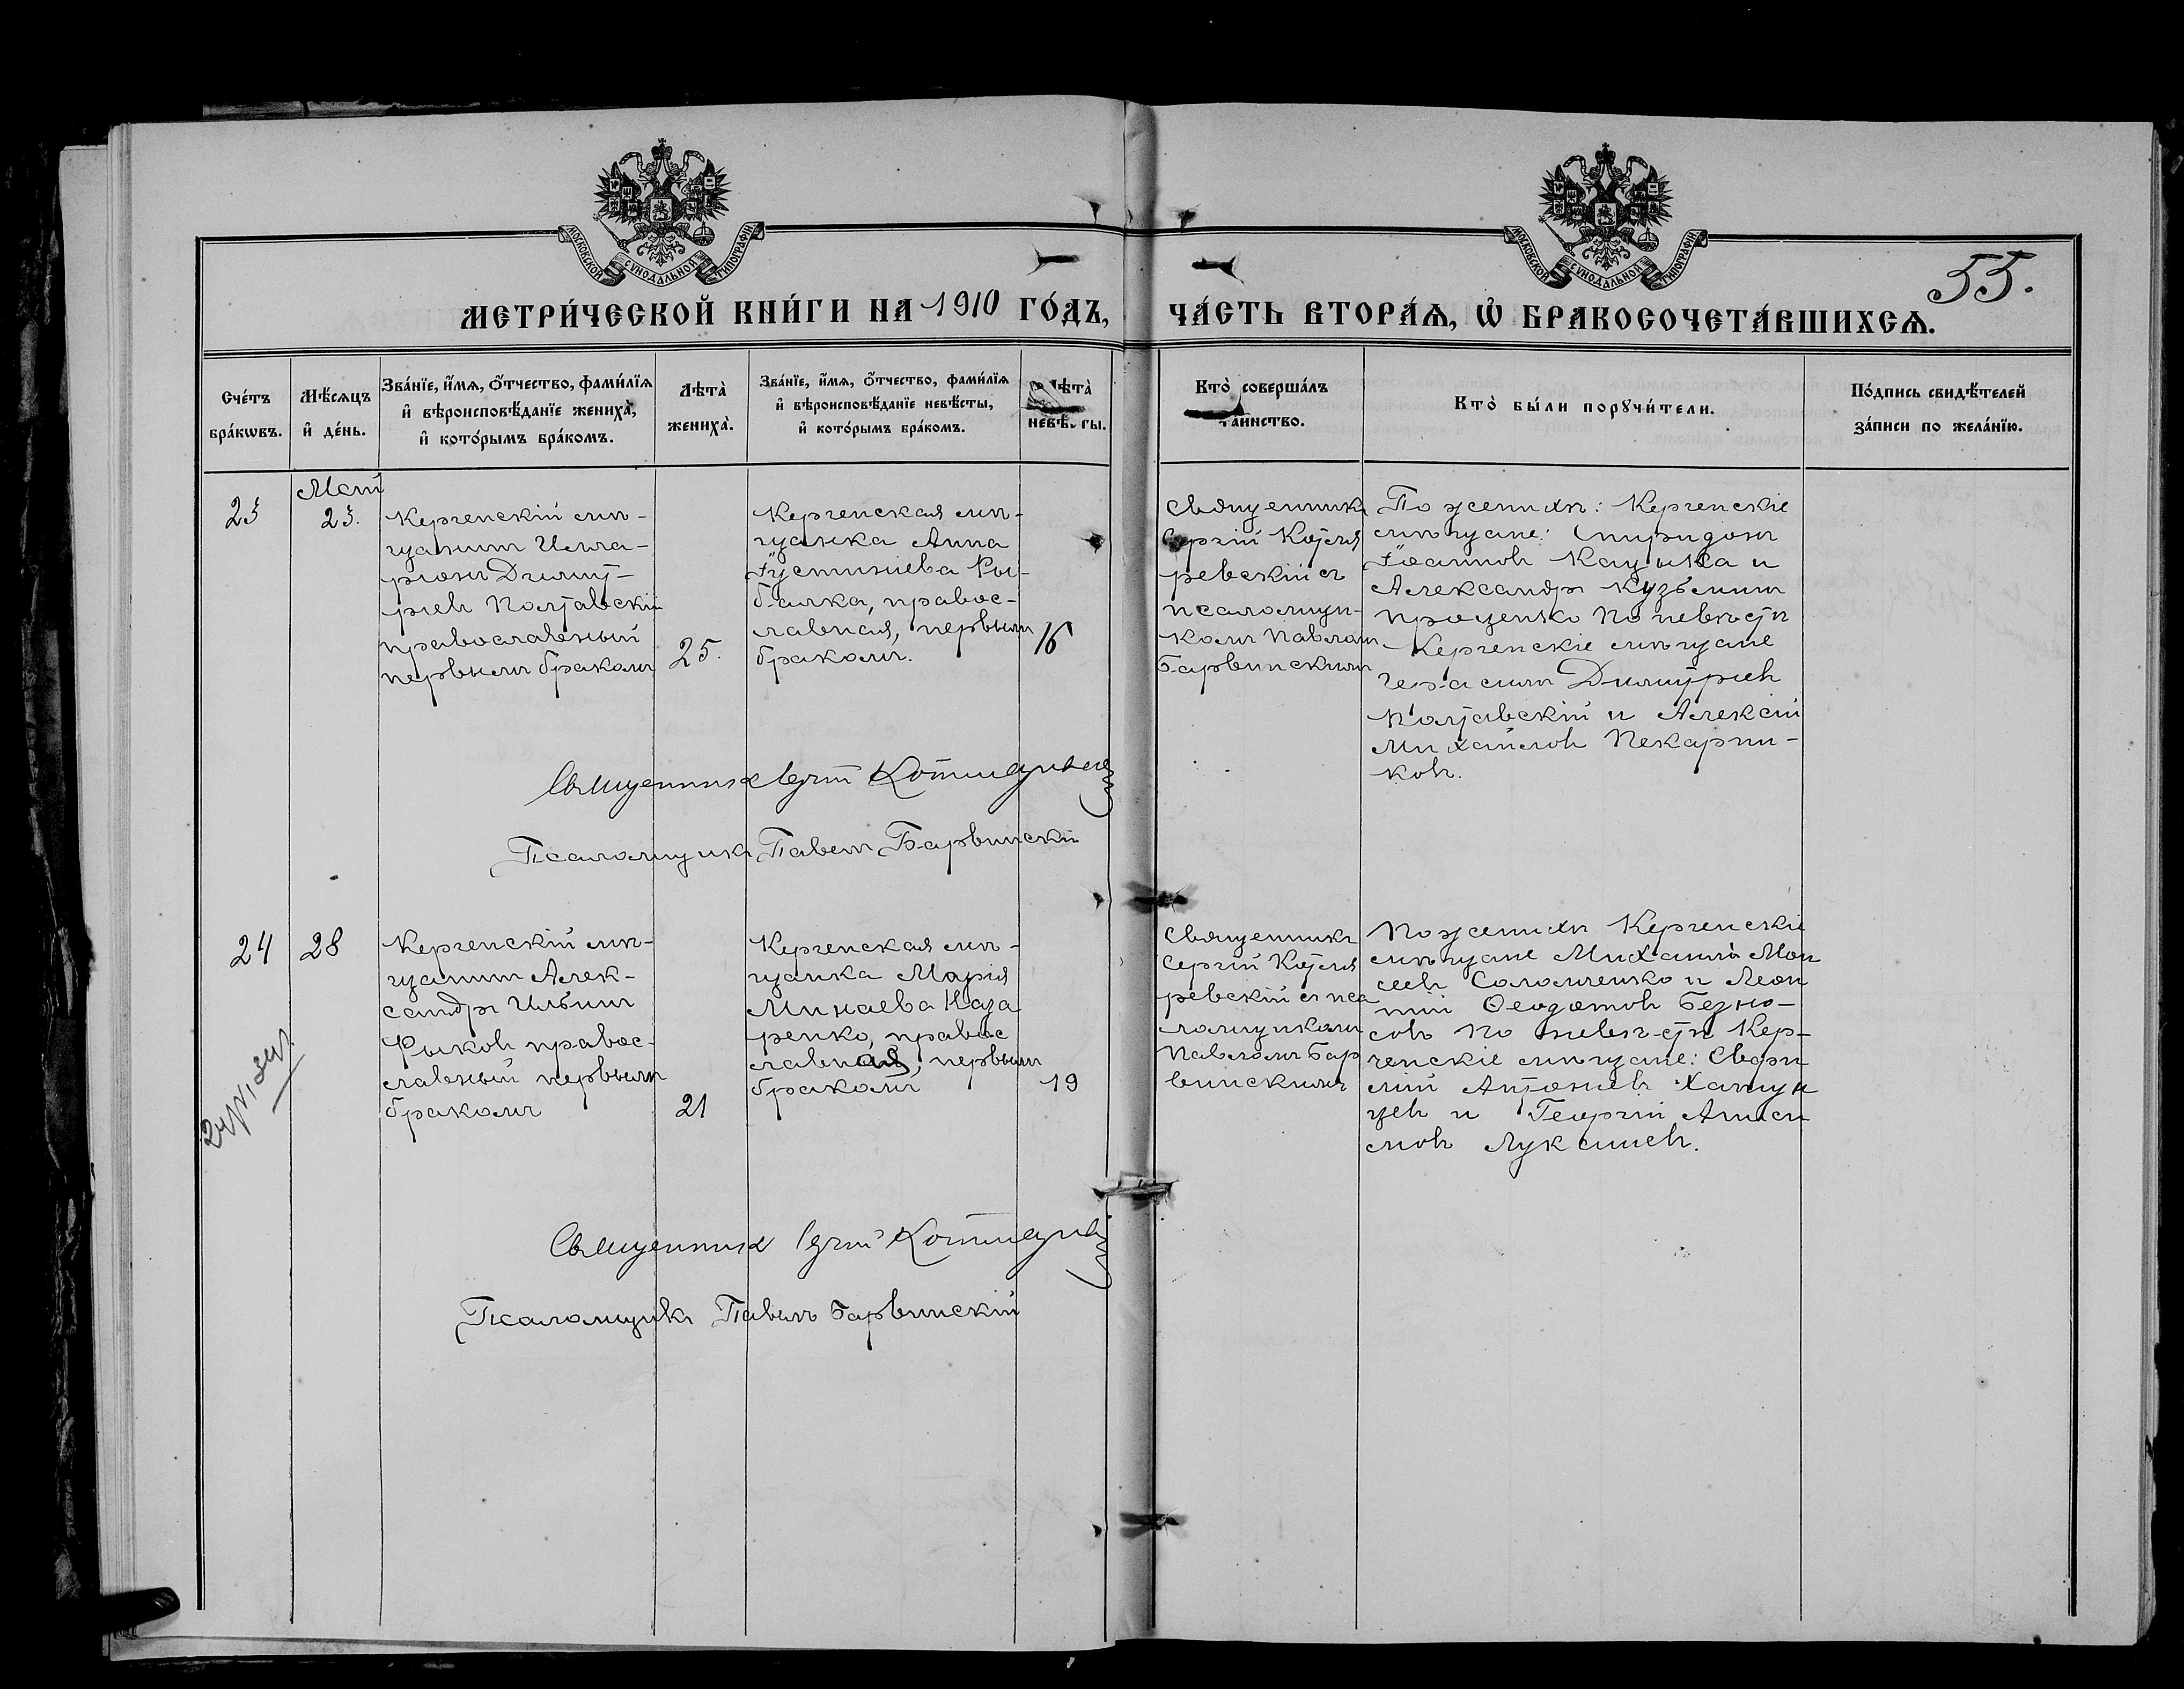 МОСКОВСКОЙ СѴНОДАЛЬНОЙ ТИПОГРАФІИ.
МОСКОВСКОЙ СѴНОДАЛЬНОЙ ТИПОГРАФІИ.
55.
МЕТРИ́ЧЕСКОЙ КНИ́ГИ НА 1910 ГО́ДЪ,
ЧА́СТЬ ВТОРА́Ѧ, Ѽ БРАКОСОЧЕТА́ВШИХСѦ.
Сче́тъ
бра́кѡвъ.
Мѣ́сяцъ
и҆ де́нь.
Зва́нїе, и҆́мѧ, ѻ҆́тчество, фами́лїѧ
и҆ вѣроисповѣ́данїе жениха̀,
и҆ кото́рымъ бра́комъ.
Лѣта̀
жениха̀.
Зва́нїе, и҆́мѧ, ѻ҆́тчество, фами́лїѧ
и҆ вѣроисповѣ́данїе невѣ́сты,
и҆ кото́рымъ бра́комъ.
Лѣта̀
невѣ́сты.
Кто̀ соверша́лъ
та́инство.
Кто̀ бы́ли порꙋчи́тели.
По́дпись свидѣ́телей
за́писи по жела́нїю.
23
Май
23.
Керченскій мѣ-
щанинъ Илла-
ріонъ Димит-
ріевъ Полтавскій
православный
первымъ бракомъ
25.
Керченская мѣ-
щанка Анна
Іустиніева Ры-
балка, правос-
лавная, первымъ
бракомъ.
16
Священникъ
Сергій Котля
ревскій съ
псаломщи-
комъ Павломъ
Барвинскимъ
По женихѣ: Керченскіе
мѣщане: Спиридонъ
Іоанновъ
и
Александръ Кузьминъ
Проценко По невѣстѣ
Керченскіе мѣщане
Герасимъ Димитріевъ
Полтавскій и Алексій
Михайловъ Пекарни-
ковъ.
Священникъ Сергій Котляревскій
Псаломщикъ Павелъ Барвинскій
24
28
Керченскій мѣ-
щанинъ Алек-
сандръ Ильинъ
Рыковъ правос-
лавный первымъ
бракомъ
21
Керченская мѣ-
щанка Марія
Минаева Наза
ренко, правос
лавная, первымъ
бракомъ
19
Священникъ
Сергій Котля
ревскій съ пса
ломщикомъ
Павломъ Бар
винскимъ
По женихѣ Керченскіе
мѣщане Михаилъ Мои
сеевъ Соломченко и Леон
тій Ѳеодотовъ Безно-
совъ По невѣстѣ Кер-
ченскіе мѣщане:
Антоніевъ
и Георгій Аниси
мовъ Лукашевъ.
Священникъ Сергій Котляревскій
Псаломщикъ Павелъ Барвинскій